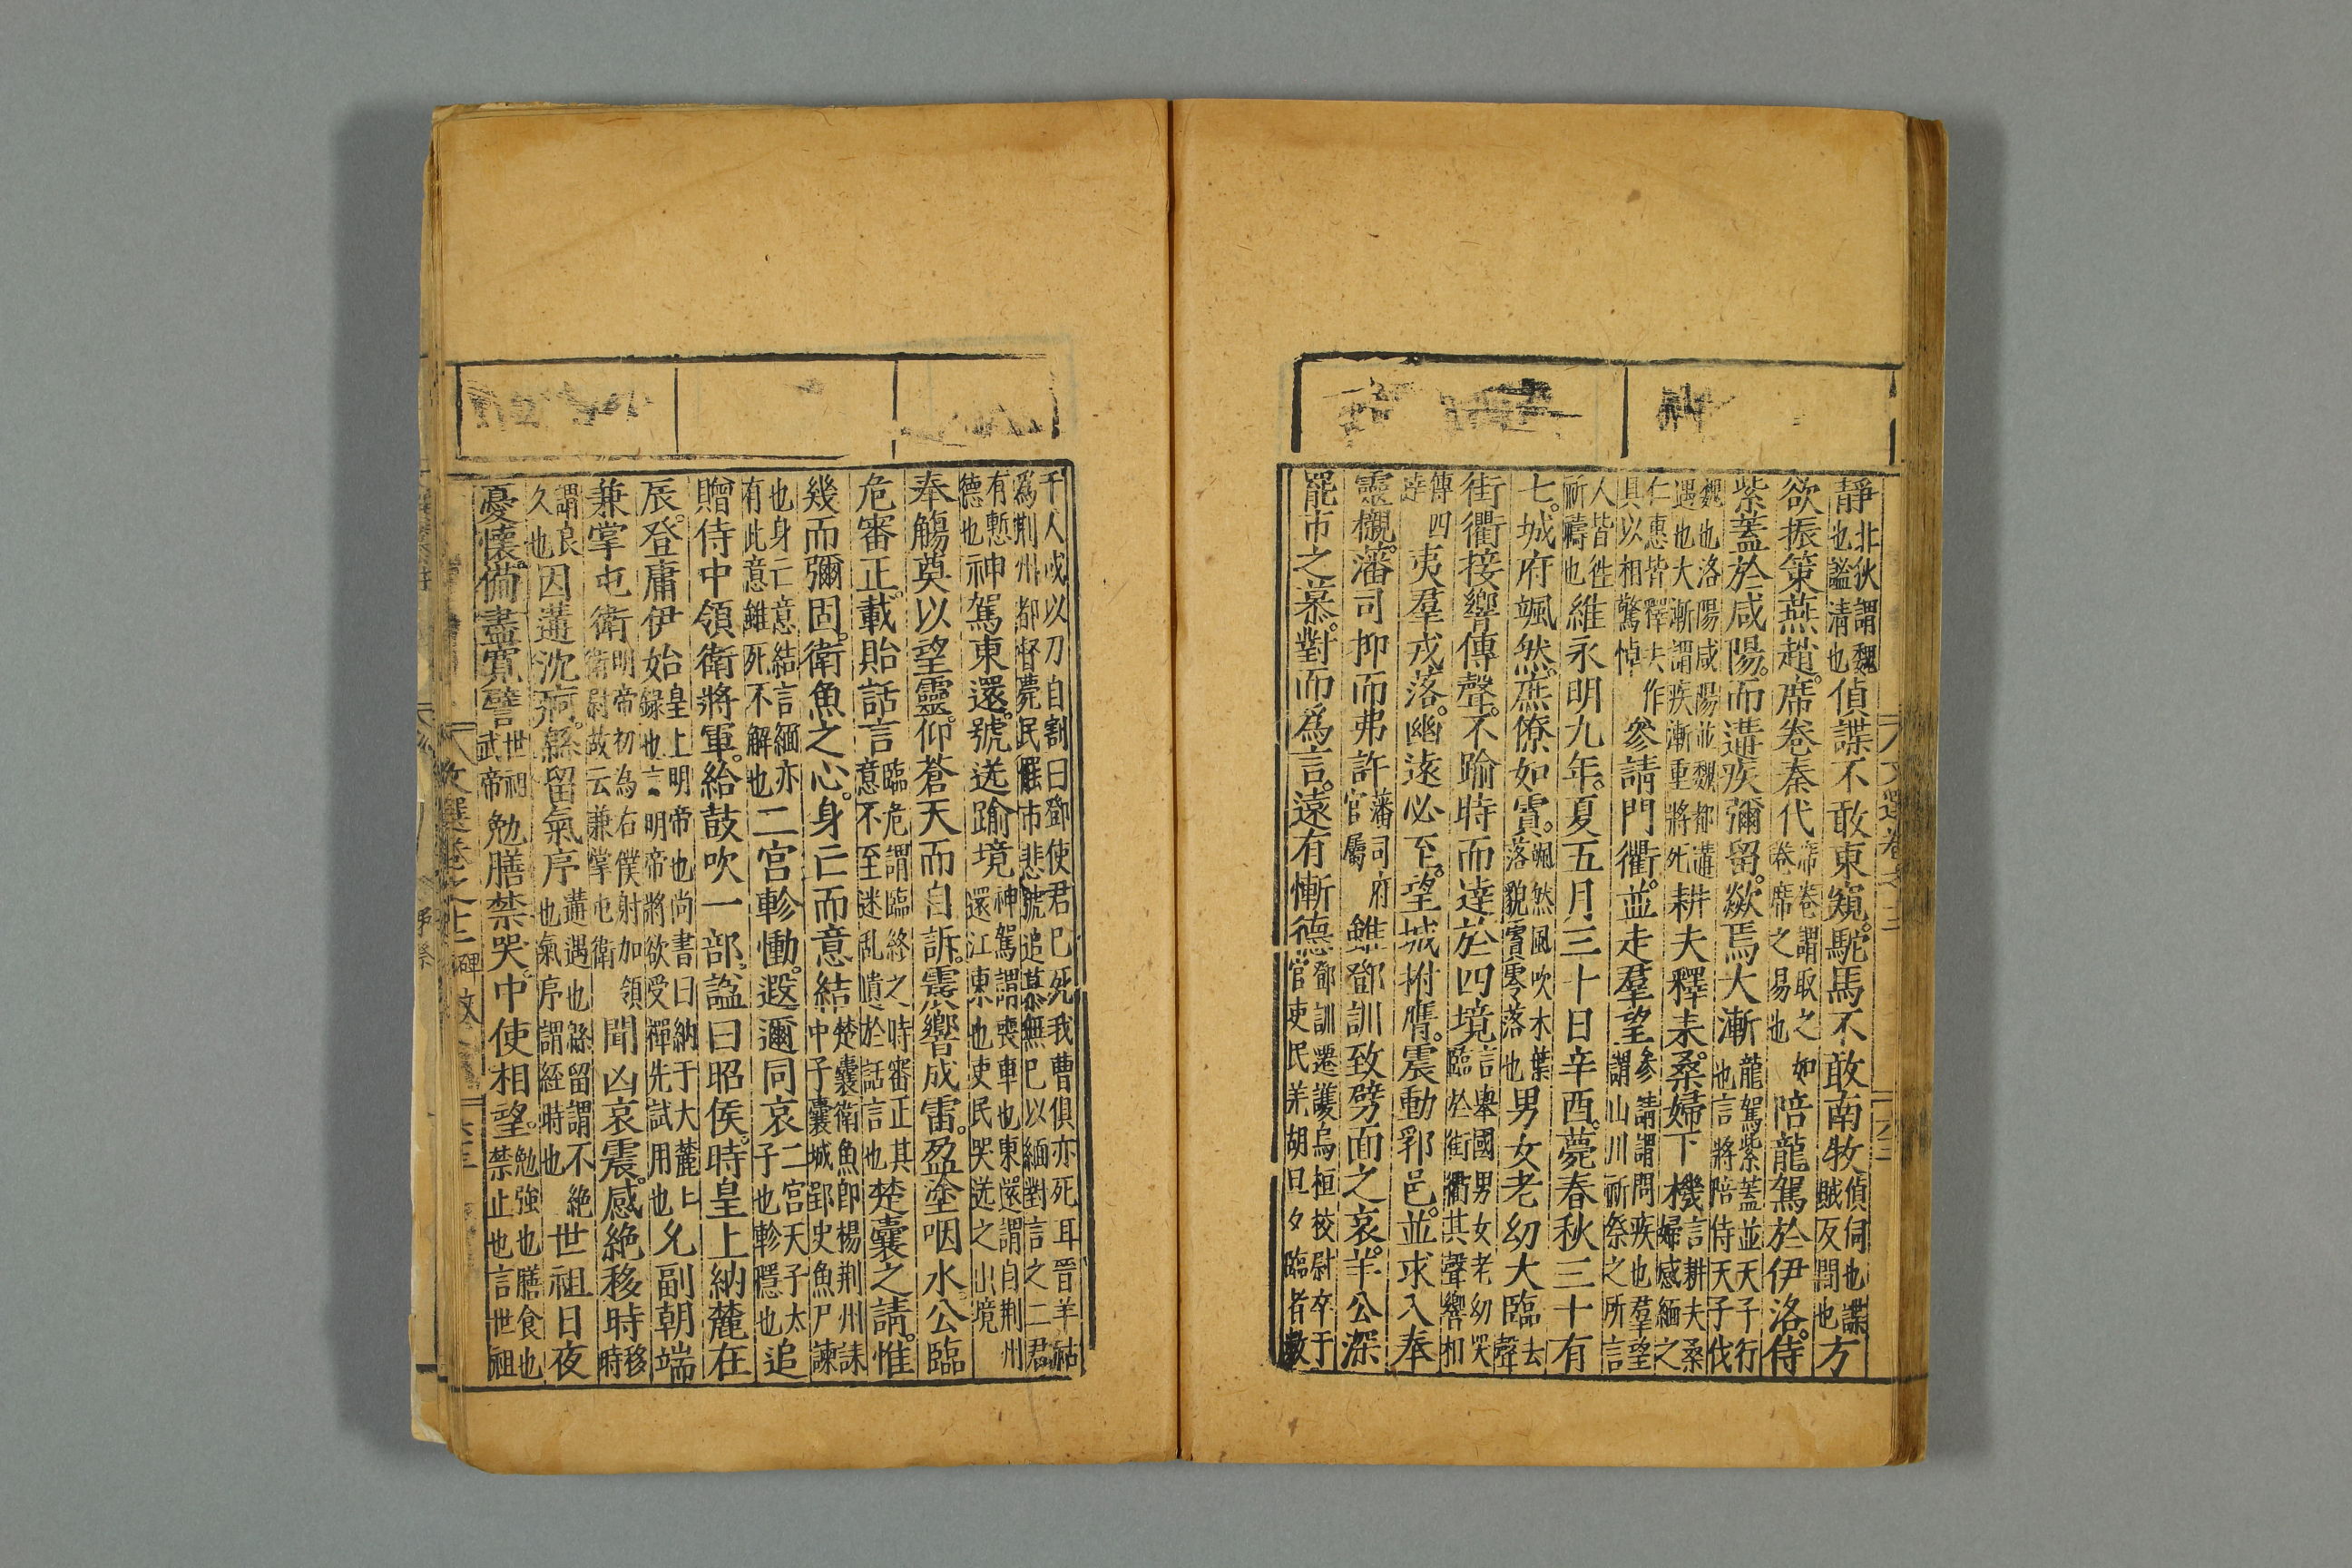 靜北狄謂魏也謐清也偵諜不敢東窺。駝馬不敢南牧偵伺也諜賊反間也方
欲振策燕趙。席卷秦代席卷謂取之如卷席之易也陪龍駕於伊洛。侍
紫蓋於咸陽。而遘疾彌留。歘焉大漸龍駕紫蓋並天子行也言將陪侍天子伐
魏也洛陽咸陽並魏都遘遇也大漸謂疾漸重將死耕夫釋耒。桑婦下機言耕夫桑婦感緬之
仁惠皆釋夫作具以相驚悼參請門衢。並走羣望參請謂問疾也羣望謂山川祈祭之所言
人皆徃祈禱也維永明九年。夏五月三十日辛酉。薨春秋三十有
七。城府颯然。庶僚如霣。颯然風吹木葉落貌霣零落也男女老幼大臨去聲
街衢接響傳聲。不踰時而達於四境言舉國男女老幼哭臨於街衢其聲響相
傳四達夷羣戎落。幽遠必至。望城拊膺。震動郛邑。並求入奉
靈櫬。藩司抑而弗許藩司府官屬雖鄧訓致劈面之哀。羊公深
罷市之慕。對而爲言。遠有慚德鄧訓遷護烏桓校尉卒于官吏民羌胡旦夕臨者數
千人或以刀自割曰鄧使君已死我曹俱亦死耳晉羊祜爲荆州都督薨民罷市悲號追慕無已以緬對言之二君
有慙德也神駕東還。號送踰境神駕謂喪車也東還謂自荆州還江東也吏民哭送之出境
奉觴奠以望靈。仰蒼天而自訴。震響成雷。盈塗咽水。公臨
危審正。載貽話言臨危謂臨終之時審正其意不至迷乱遺於話言也楚囊之請。惟
幾而彌固。衛魚之心。身亡而意結楚囊衛魚卽楊荆州誄中子囊城郢史魚尸諫
也身亡意結言緬亦有此意雖死不解也二宮軫慟。遐邇同哀二宮天子太子也軫隱也追
贈侍中領衛將軍。給鼓吹一部。謚曰昭侯。時皇上納麓在
辰。登庸伊始皇上明帝也尚書曰納于大麓上録也言明帝將欲受禪先試用也允副朝端
兼掌屯衛明帝初為右僕射加領衛尉故云兼掌屯衛聞凶哀震。感絶移時移時
謂良久也因遘沈痾。緜留氣序遘遇也緜留謂不絶也氣序謂經時也世祖日夜
憂懷。備盡寬譬世祖武帝勉膳禁哭。中使相望。勉強也膳食也禁止也言世祖
文選卷之十二 碑文